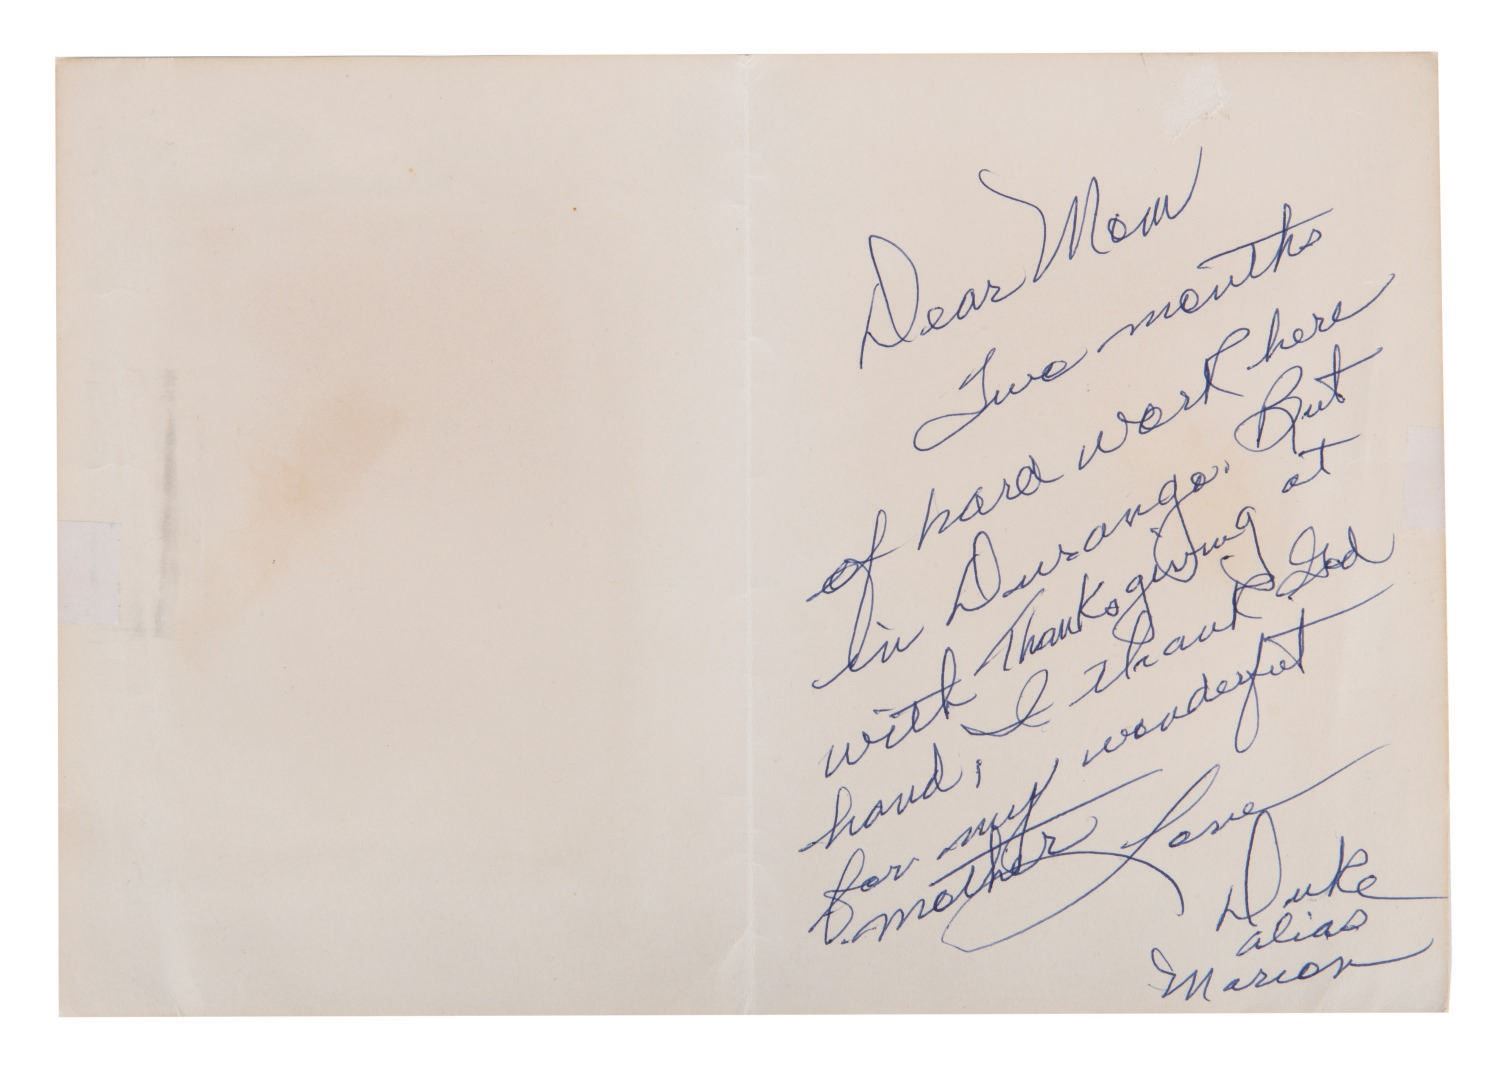 Dear Mom
Two months
of hard work here
in Durango. But
with Thanksgiving at
hand, I thank God
for my wonderful
mother Love
Duke
alias
Marion